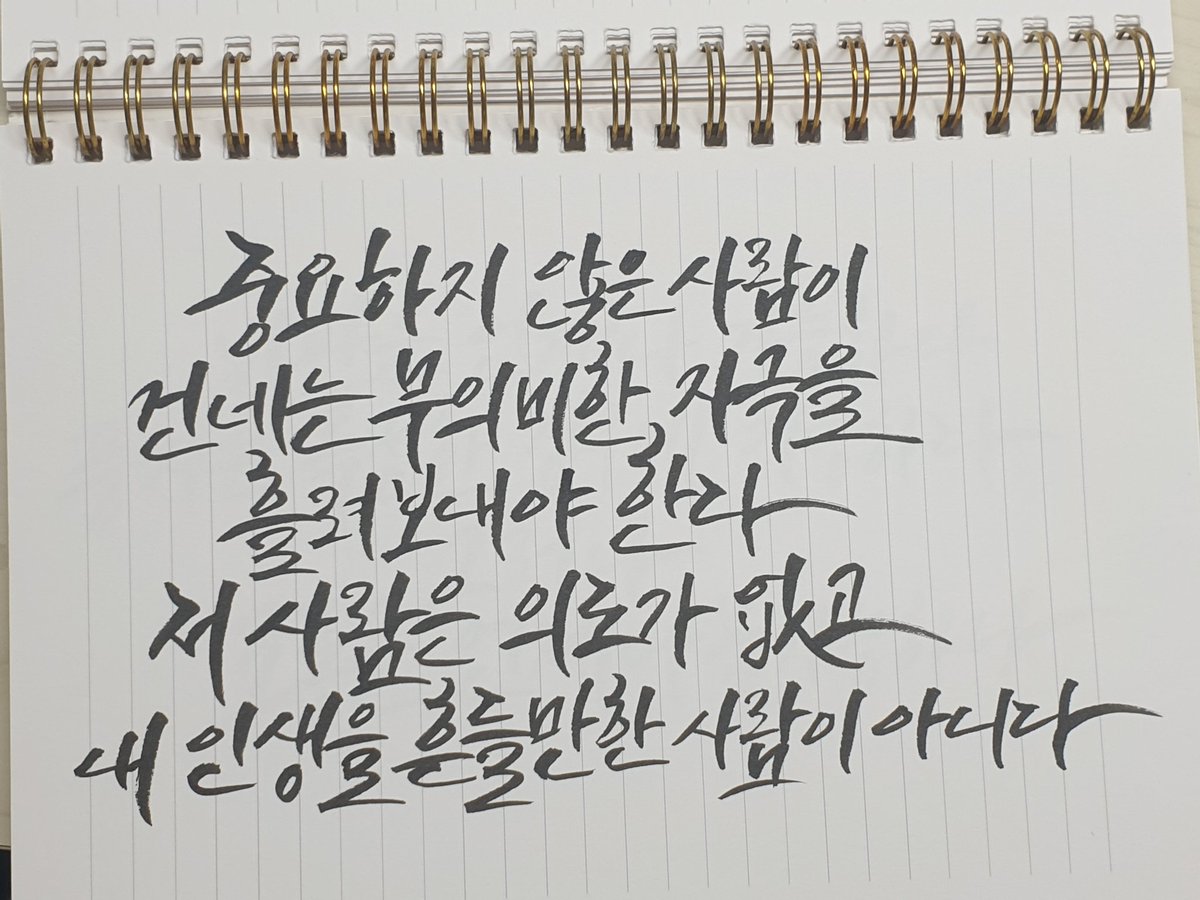 중요하지 않은 사람이
건네는 무의미한 자극을
흘려보내야 한다
저 사람은 의도가 없고
내 인생을 흔들만한 사람이 아니다